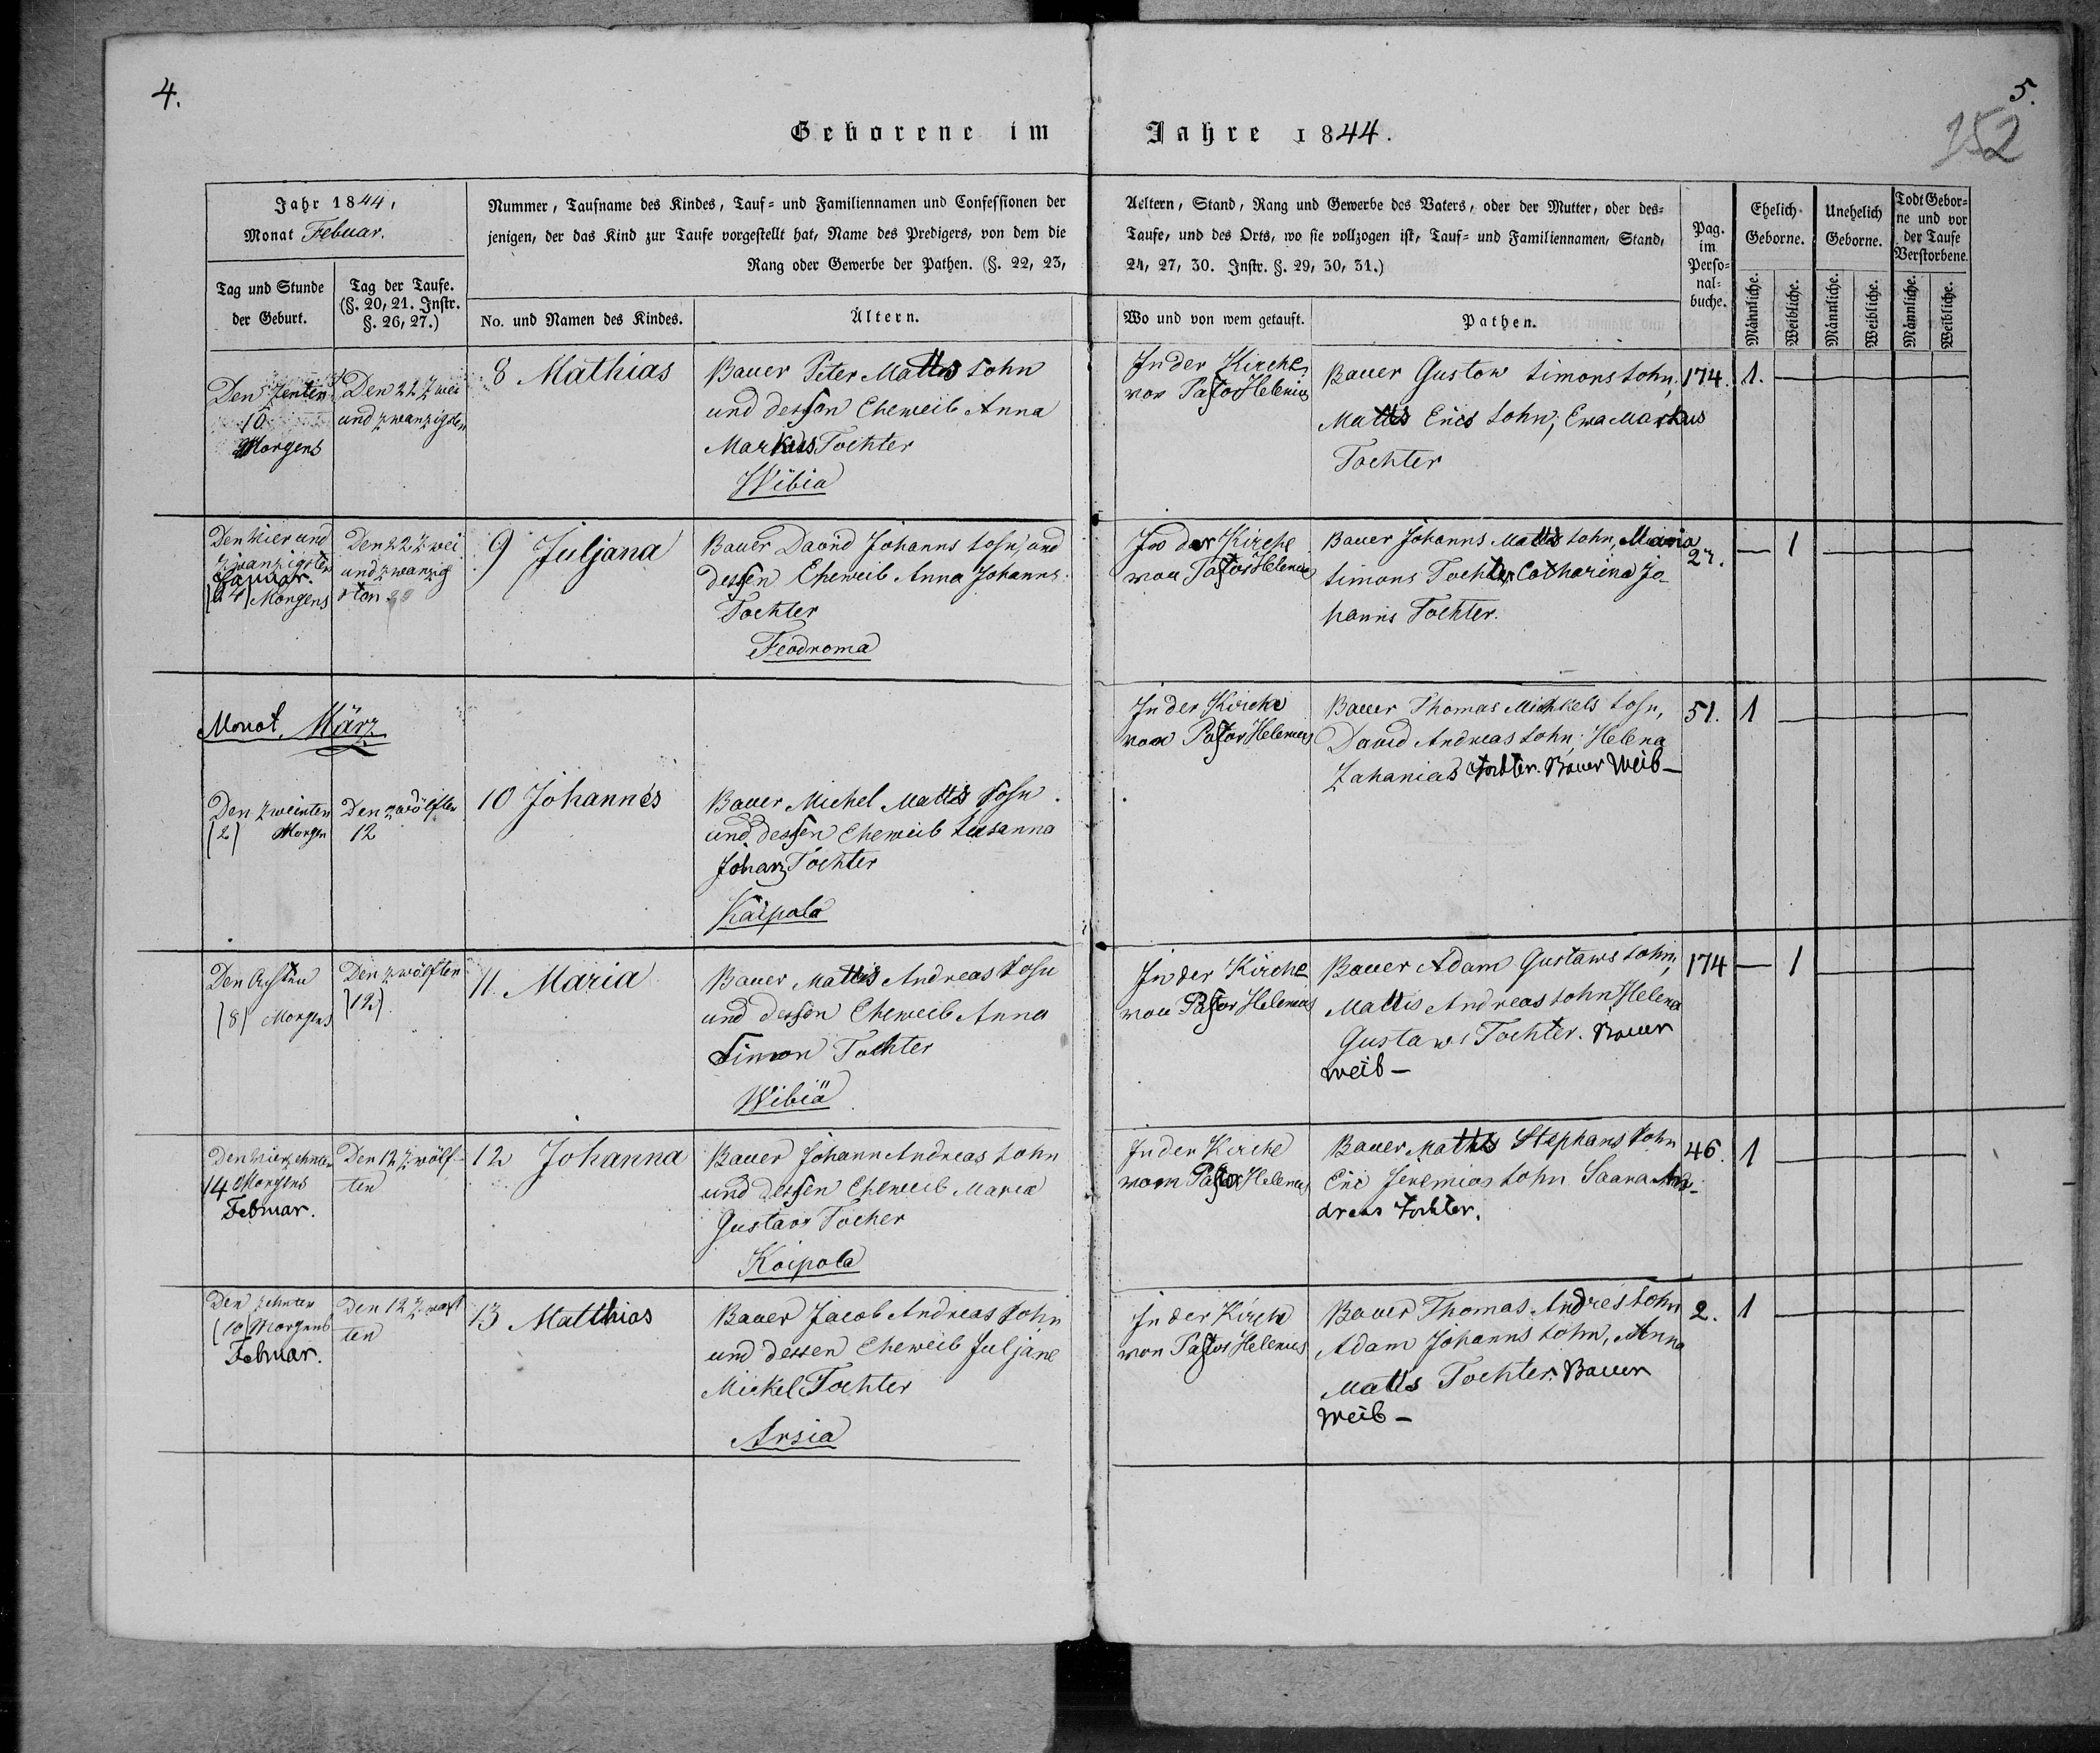 4.
5.
152
Geborene im Jahre 1844.
Jahr 1844,
Monat Febuar.
Tag und Stunde
der Geburt.
Tag der Taufe.
(§. 20, 21. Instr.
§. 26, 27.)
Nummer, Taufname des Kindes, Tauf- und Familiennamen und Confessionen der
jenigen, der das Kind zur Taufe vorgestellt hat, Name des Predigers, von dem die
Rang oder Gewerbe der Pathen. (§. 22, 23,
No. und Namen des Kindes.
Ältern.
Aeltern, Stand, Rang und Gewerbe des Vaters, oder der Mutter, oder des-
Taufe, und des Orts, wo sie vollzogen ist, Tauf- und Familiennamen, Stand,
24, 27, 30. Instr. §. 29, 30, 31.)
Wo und von wem getauft.
Pathen.
Pag.
im
Perso-
nal-
buche.
Ehelich
Geborne.
Unehelich
Geborne.
Todt Gebor-
ne und vor
der Taufe
Verstorbene.
Männliche.
Weibliche.
Männliche.
Weibliche.
Männliche.
Weibliche.
Den
10
Morgens
Den 22 Zwei
und zwanzigsten
8 Mathias
Bauer Peter Matts Sohn
und dessen Eheweib Anna
Markus Tochter
Wibia
In der Kirche
von Pastor Helenius
Bauer Gustow Simons Sohn,
Matts Erics Sohn, Ewa Markus
Tochter
174.
1.
Den vier und
zwanzigsten
Januar.
(24) Morgens
Den 22 Zwei
und zwanzig
sten
9 Juljana
Bauer David Johanns Sohn, und
dessen Eheweib Anna Johanns
Tochter
Feodroma
In der Kirche
von Pastor Helenius
Bauer Johanns Matts Sohn, Maria
Simons Tochter Catharina Jo-
hanns Tochter.
27.
1
Monat März
Den Zweinten
(2) Morgen
Den zwölften
12
10 Johannes
Bauer Michel Matts Sohn
und dessen Eheweib Susanna
Johans Tochter
Kaipola
In der Kirche
von Pastor Helenius
Bauer Thomas Michkels Sohn,
David Andreas Sohn, Helena
Zahanias Tochter. Bauer Weib –
51.
1
Den Achten
(8) Morgens
Den zwölften
(12)
11. Maria
Bauer Mattis Andreas Sohn
und dessen Eheweib Anna
Simon Tochter
Wibiä
In der Kirche
von Pastor Helenius
Bauer Adam Gustaws Sohn,
Mattis Andreas Sohn Helena
Gustaws Tochter. Bauer
weib –
174
1
Den vierzehnten
14 Morgens
Februar.
Den 12 Zwölf-
ten
12 Johanna
Bauer Johann Andreas Sohn
und dessen Eheweib Maria
Gustav Tocher
Koipola
In der Kirche
vom Pastor Helenius
Bauer Matts Stephans Sohn
Eric Jeremias Sohn Saara An-
dreas Tochter.
46.
1
Den zehnten
(10) Morgens
Februar.
Den 12
ten
13 Matthias
Bauer Jacob Andreas Sohn
und dessen Eheweib Juljane
Mickel Tochter
Arsia
In der Kirche
von Pastor Helenius
Bauer Thomas Andres Sohn
Adam Johanns Sohn, Anna
Matts Tochter. Bauer
Weib –
2.
1